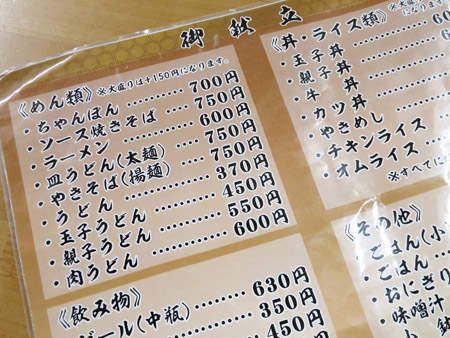 御献立
《めん類》 ※大盛りは+150円になります。
・ちゃんぽん……… 700円
・ソース焼きそば…… 750円
・ラーメン……… 600円
・皿うどん(太麺)…… 750円
・やきそば(揚麺)…… 750円
・うどん……… 370円
・玉子うどん……… 450円
・親子うどん……… 550円
・肉うどん……… 600円
《飲み物》
ビール(中瓶)……… 630円
350円
450円
《丼・ライス類》 ※大盛り
・玉子丼………
・親子丼………
・牛丼………
・カツ丼………
・やきめし………
・チキンライス……
・オムライス……
※すべてに
《その他》
・ごはん(小)
・ごはん……
・おにぎり
・味噌汁